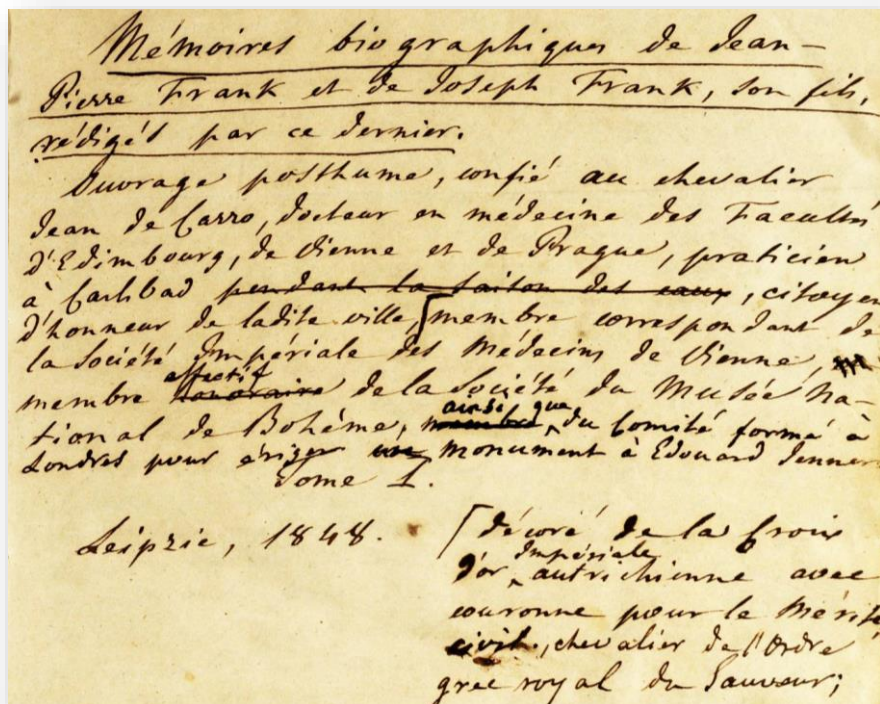 Mémoires biographiques de Jean-
Pierre Frank et de Joseph Frank, son fils,
rédigés par ce dernier.
Ouvrage posthume, confié au chevalier
Jean de Carro, docteur en médecine des Facultés
d'Edimbourg, de Vienne et de Prague, praticien
à Carlsbad pendant la saison des eaux, citoyen
d'honneur de ladite ville, [membre correspondant de
la Société Impériale des Médecins de Vienne, m
effectif
membre honoraire de la Société du Musée na-
ainsi que
tional de Bohême, membre du Comité formé à
Londres pour ériger un monument à Edouard Jenner
Tome 1.
Leipzic, 1848.
[décoré de la Croix
Impériale
d'or autrichienne avec
couronne pour le Mérite
civil, chevalier de l'Ordre
grec royal du Sauveur;